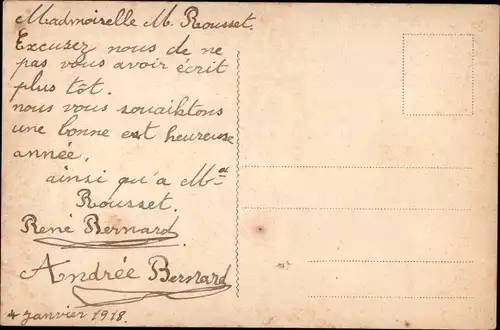 Madmoiselle M. Rousset.
Excusez nous de ne
pas vous avoir écrit
plus tôt.
nous vous souaiktons
une bonne est heureuse
année,
ainsi qu'a Me
Rousset.
René Bernard
Andrée Bernard
4 Janvier 1918.